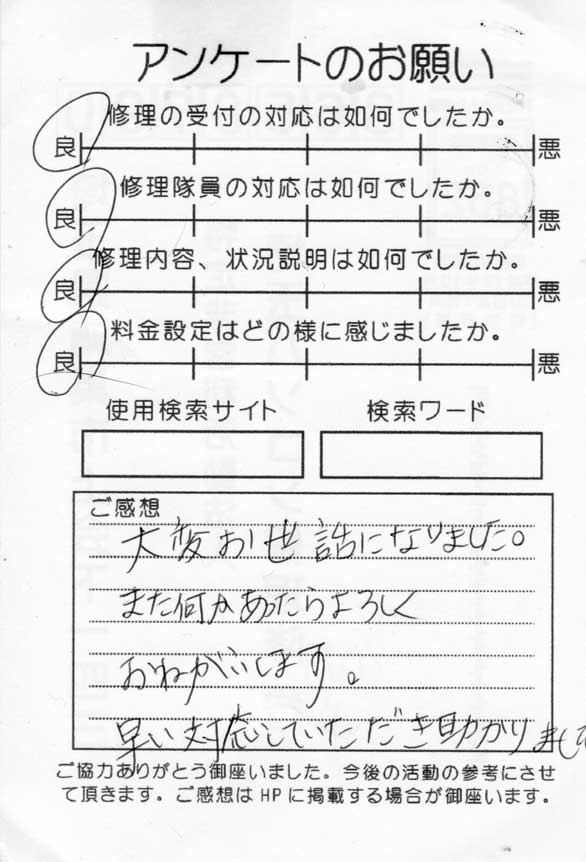 アンケートのお願い
修理の受付の対応は如何でしたか。
良 悪
修理隊員の対応は如何でしたか。
良 悪
修理内容、状況説明は如何でしたか。
良 悪
料金設定はどの様に感じましたか。
良 悪
使用検索サイト 検索ワード
ご感想
大変お世話になりました。
また何かあったらよろしく
おねがいします。
早い対応していただき助かりました
ご協力ありがとう御座いました。今後の活動の参考にさせ
て頂きます。ご感想はHPに掲載する場合が御座います。